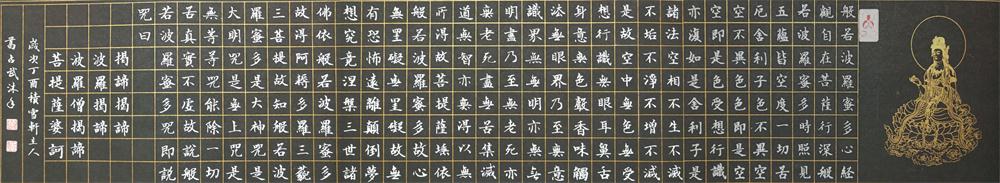 般若波羅蜜多心經
觀自在菩薩行深般
若波羅蜜多時照見
五蘊皆空度一切苦
厄舍利子色不異空
空不異色色即是空
空即是色受想行識
亦復如是舍利子是
諸法空相不生不滅
不垢不淨不增不減
是故空中無色無受
想行識無眼耳鼻舌
身意無色聲香味觸
法無眼界乃至無意
識界無無明亦無無
明盡乃至無老死亦
無老死盡無苦集滅
道無智亦無得以無
所得故菩提薩埵依
般若波羅蜜多故心
無罣礙無罣礙故無
有恐怖遠離顛倒夢
想究竟涅槃三世諸
佛依般若波羅蜜多
故得阿耨多羅三藐
三菩提故知般若波
羅蜜多是大神咒是
大明咒是無上咒是
無等等咒能除一切
苦真實不虛故說般
若波羅蜜多咒即說
咒曰
揭諦揭諦
波羅揭諦
波羅僧揭諦
菩提薩婆訶
歲次丁酉積雪軒主人
葛占武沐手